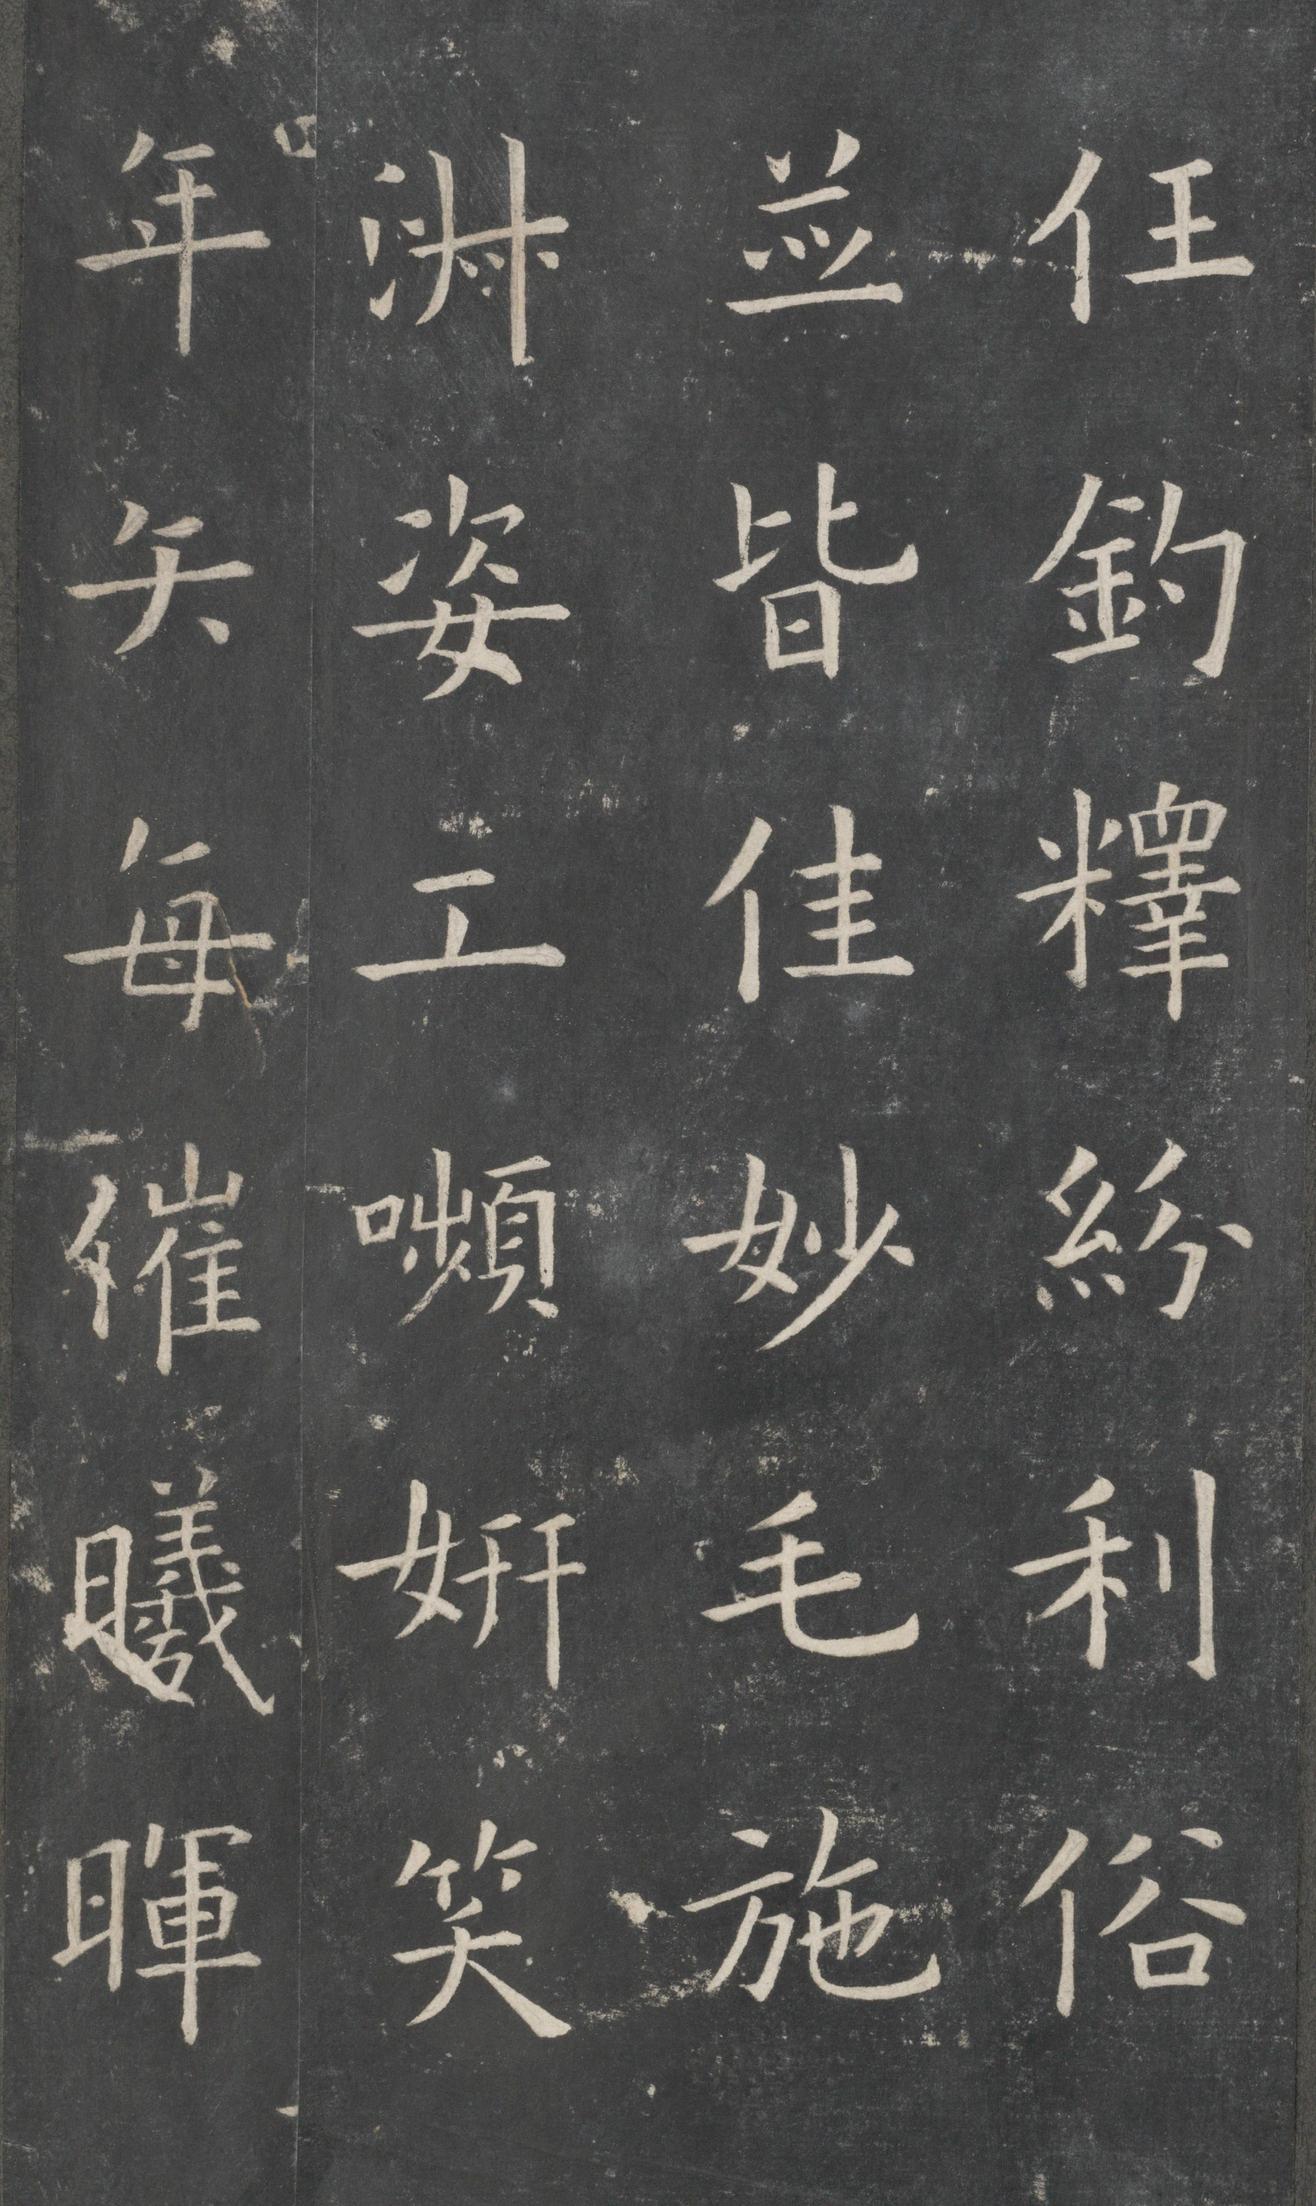 任釣釋紛利俗
並皆佳妙毛施
淋姿工嚬妍笑
年矢每催曦暉